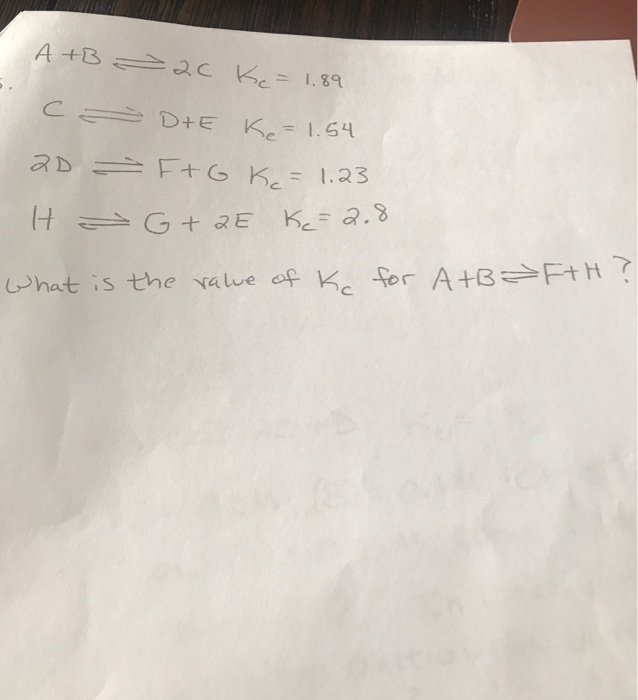 A + B ⇌ 2C Kc = 1.89
C ⇌ D+E Kc = 1.54
2D ⇌ F+G Kc = 1.23
H ⇌ G + 2E Kc = 2.8
What is the value of Kc for A+B⇌F+H ?